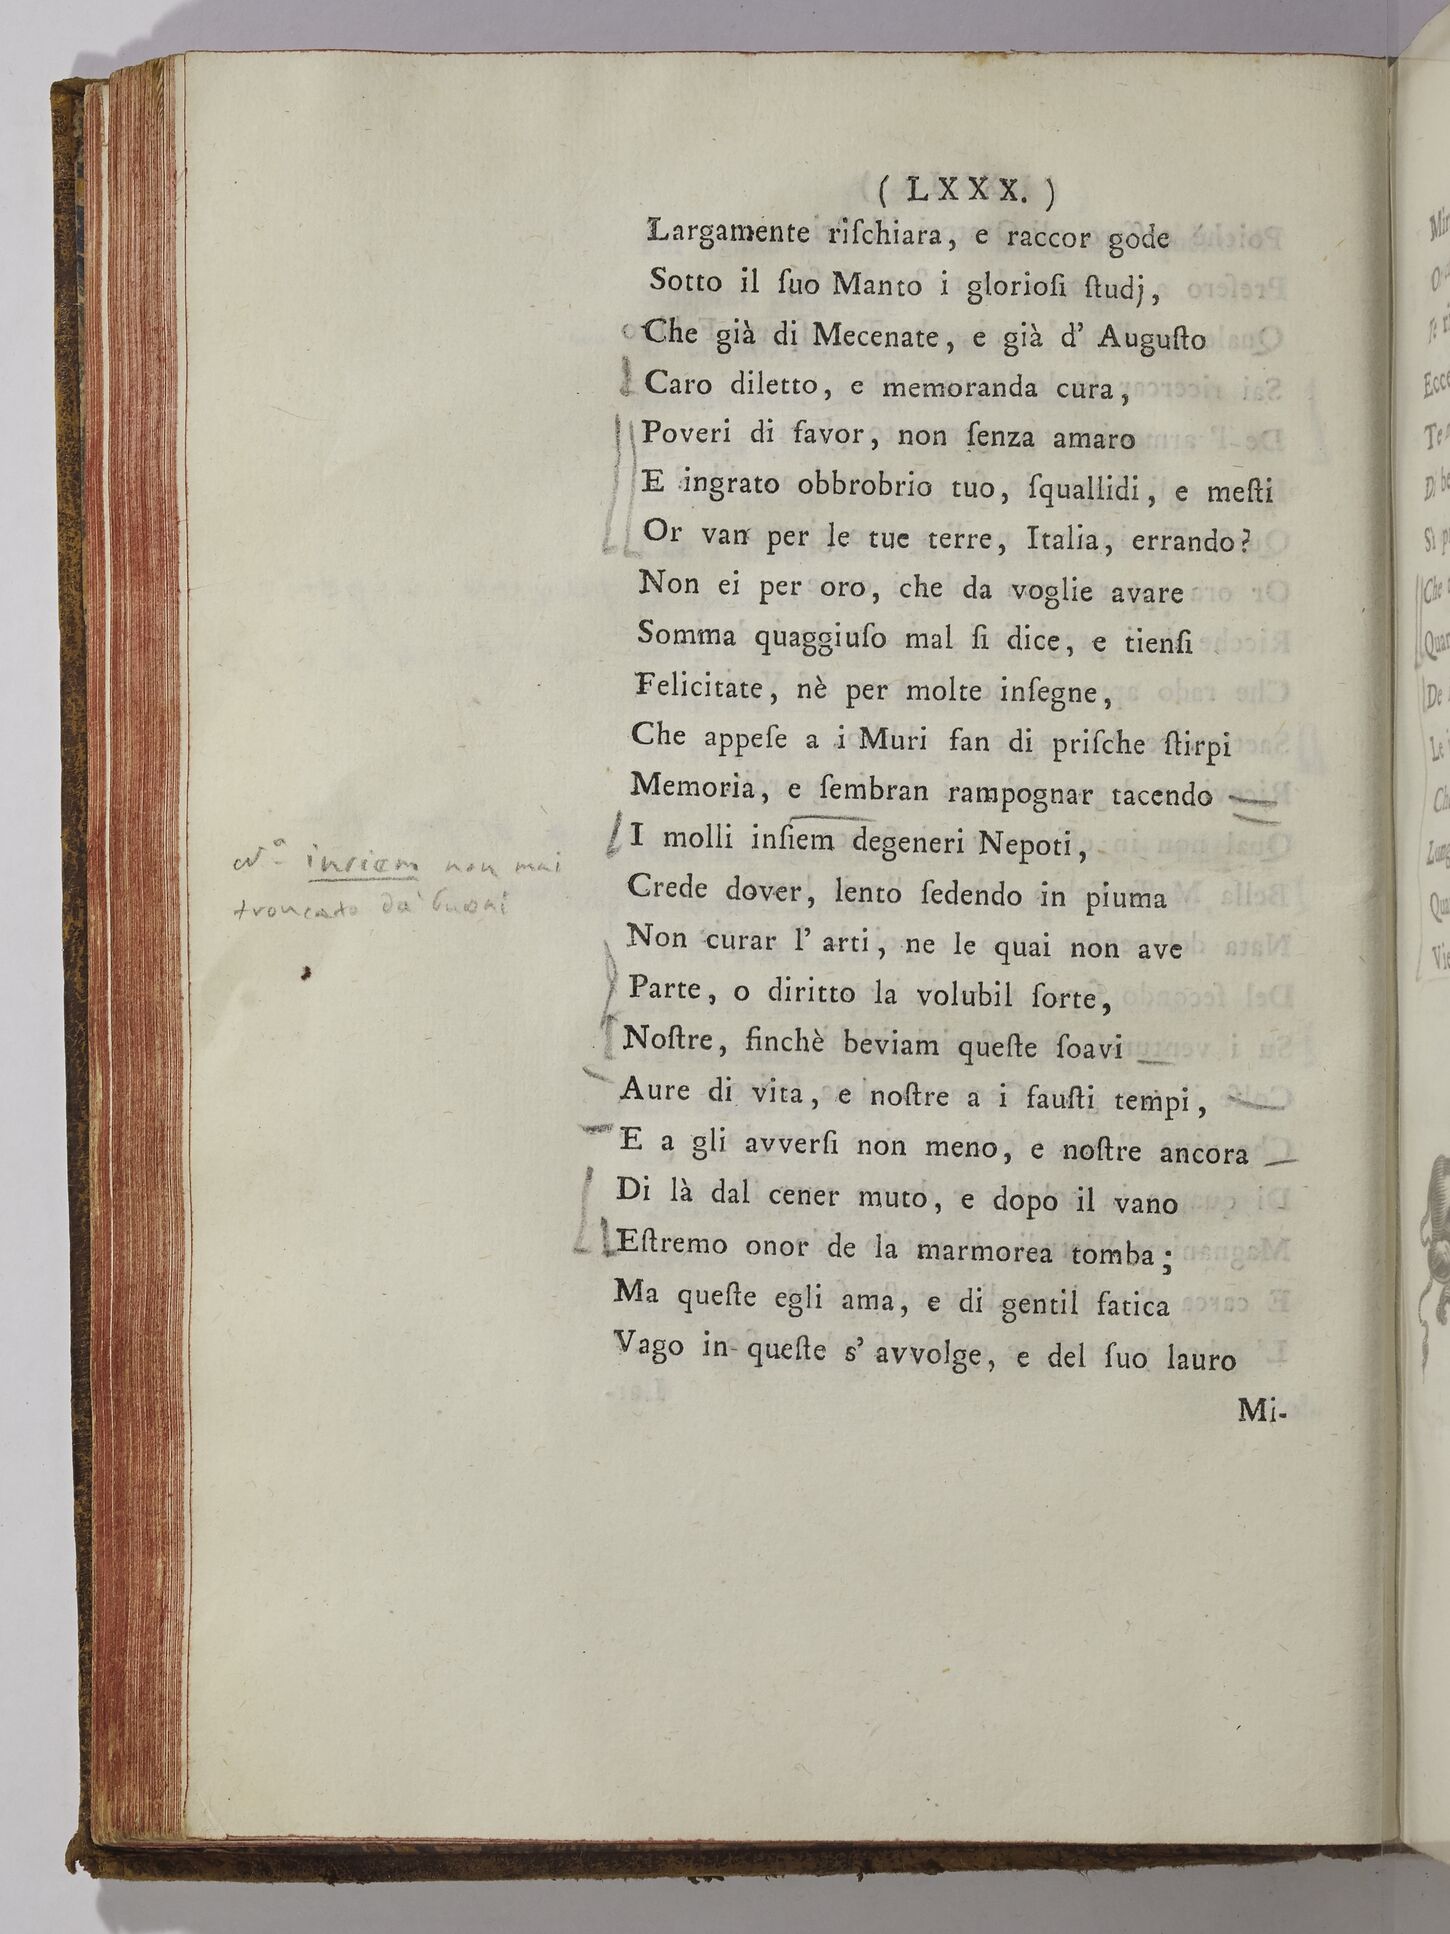 ( LXXX. )
Largamente riſchiara, e raccor gode
Sotto il ſuo Manto i glorioſi ſtudj,
Che già di Mecenate, e già d' Auguſto
Caro diletto, e memoranda cura,
Poveri di favor, non ſenza amaro
E ingrato obbrobrio tuo, ſquallidi, e meſti
Or van per le tue terre, Italia, errando?
Non ei per oro, che da voglie avare
Somma quaggiuſo mal ſi dice, e tienſi
Felicitate, nè per molte inſegne,
Che appeſe a i Muri fan di priſche ſtirpi
Memoria, e ſembran rampognar tacendo
I molli inſiem degeneri Nepoti,
Nº insiem non mai
troncato da' buoni
Crede dover, lento ſedendo in piuma
Non curar l' arti, ne le quai non ave
Parte, o diritto la volubil ſorte,
Noſtre, finchè beviam queſte ſoavi
Aure di vita, e noſtre a i fauſti tempi,
E a gli avverſi non meno, e noſtre ancora
Di là dal cener muto, e dopo il vano
Eſtremo onor de la marmorea tomba;
Ma queſte egli ama, e di gentil fatica
Vago in queſte s' avvolge, e del ſuo lauro
Mi-